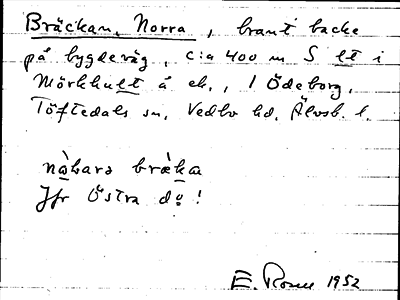 Bräckan, Norra, brant backe
på bygdeväg, c:a 400 m S lt i
Mörkhult å ek., 1 Ödeborg,
Töftedals sn, Vedbo hd, Älvsb. l.
nɑ̀bara bræ̀ka
Jfr Östra do!
E. Rosell 1952